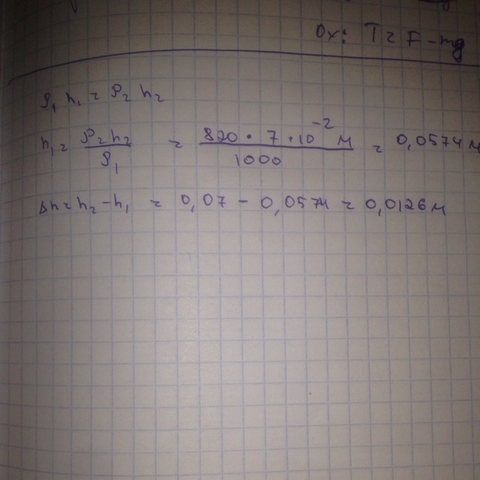 Ox: T = F - mg
ρ₁ h₁ = ρ₂ h₂
h₁ = ρ₂h₂/ρ₁ = 820 · 7 · 10⁻² м/1000 = 0,0574 м
Δh = h₂ - h₁ = 0,07 - 0,0574 = 0,0126 м